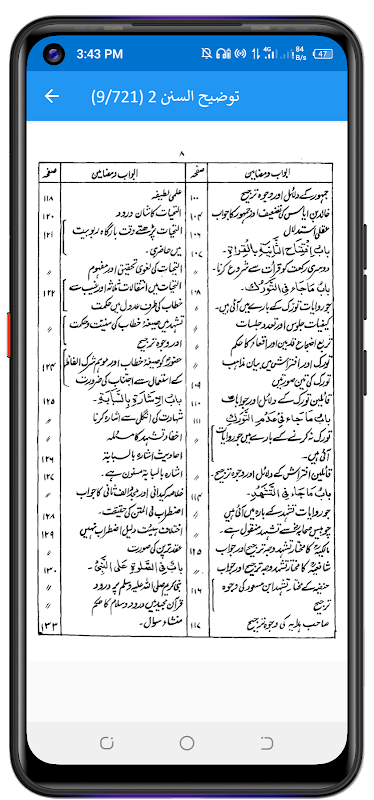 3:43 PM
4G
84 B/s
47
توضیح السنن 2 (9/721)
۸
ابواب و مضامین
صفحہ
جمہور کے دلائل اور وجوہ ترجیح
۱۰۰
خالد بن ایاس کی تضعیف اور جمہور کا جواب
۱۰۴
عقلی استدلال
۱۰۶
باب افتتاح الثانیۃ بالقراءۃ۔
۱۰۷
دوسری رکعت کو قرأت سے شروع کرنا۔
〃
باب ما جاء فی التورک۔
جو روایات تورک کے بارے میں آئی ہیں۔
〃
کیفیات جلوس اور تعدد جلسات
〃
〃
تورک اور افتراش میں بیان مذاہب
تورک کی تین صورتیں
۱۰۹
قائلین تورک کے دلائل اور جوابات
۱۱۰
باب ما جاء فی عدم التورک
۱۱۱
تورک نہ کرنے کے بارے میں جو روایات
آئی ہیں۔
〃
قائلین افتراش کے دلائل اور وجوہ ترجیح۔
〃
باب ما جاء فی التشہد۔
۱۱۴
جو روایات تشہد کے بارہ میں آئی ہیں
〃
چوبیس صحابہؓ سے تشہد منقول ہے۔
〃
مالکیہؒ کا مختار تشہد وجہ ترجیح اور جواب
شافعیہؒ کا مختار تشہد وجہ ترجیح اور جواب
〃
حنفیہ کے مختار تشہد ابن مسعود کی وجوہ
ترجیح
۱۱۶
صاحب ہدایہ کی وجوہ ترجیح
۱۱۷
ابواب و مضامین
صفحہ
علمی لطیفہ
۱۱۸
التحیات کا شان ورود
۱۲۰
التحیات پڑھتے وقت بارگاہ ربوبیت
میں حاضری۔
۱۲۱
التحیات کی لغوی تحقیق اور مفہوم
〃
التحیات میں انتقالات متاثر اور غیب سے
خطاب کی طرف عدول میں حکمت
۱۲۲
تشہد میں صیغہ خطاب کی سنیت و حکمت
اور وجوہ ترجیح
〃
حضورؐ کو صیغہ خطاب اور موہم شرک الفاظ
کے استعمال سے اجتناب کی ضرورت
۱۲۴
باب الاشارۃ بالسبابۃ۔
۱۲۵
شہادت کی انگلی سے اشارہ کرنا
〃
اخفاء تشہد کا مسئلہ
〃
احادیث اشارہ بالسبابہ
۱۲۶
اشارہ بالسبابہ مسنون ہے۔
۱۲۷
خلاصہ کیدانی اور مجدد الف ثانی کا جواب
〃
اضطراب فی المتن کی حقیقت۔
۱۲۸
اختلاف ہیئت دلیل اضطراب نہیں
۱۲۹
عقد ترپن کی صورت
〃
باب فی الصلوٰۃ علی النبیؐ۔
۱۳۰
نبی کریم صلی اللہ علیہ وسلم پر درود
〃
قرآن مجید میں درود و سلام کا حکم
〃
منشاء سوال۔
۱۳۳